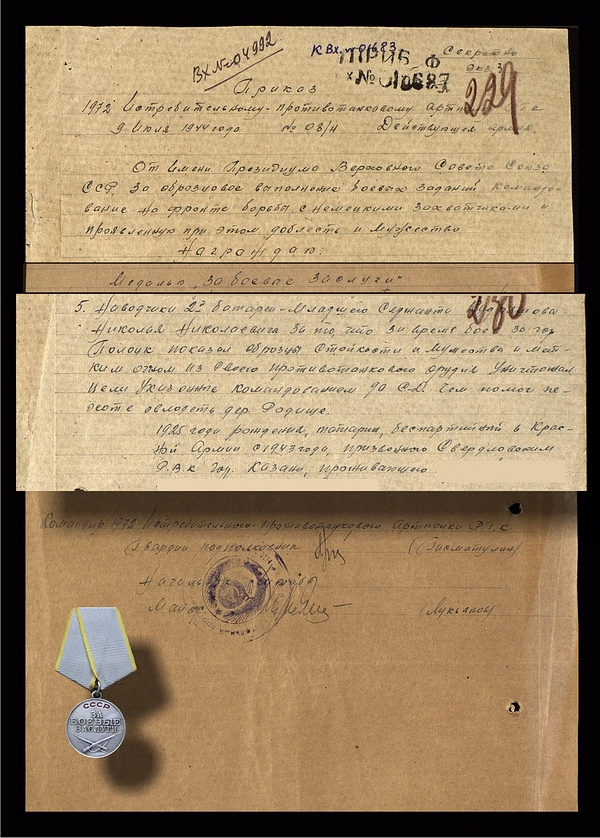 Вх №04992
К Вх. №01683
Секретно
Экз 3
ШТРИБ. Ф
х № 010687
229
Приказ
1972 Истребительному-Противотанковому Арт
9 Июля 1944 года № 08/Н Действующая армия.
От имени Президиума Верховного Совета Союза
ССР за образцовое выполнение боевых заданий Командо-
вание на фронте борьбы с немецкими захватчиками и
проявленную при этом доблесть и мужество
Награждаю:
Медалью "За боевые заслуги"
230
5. Наводчика 2й батареи - Младшего Сержанта
Николая Николаевича за то, что за время боев за гор
Полоцк показал образцы стойкости и мужества и мет-
ким огнем из своего противотанкового орудия уничтожал
цели указанные командованием до С.Д. чем помог пе-
хоте овладеть дер. Родище.
1925 года рождения, татарин, беспартийный в Крас-
ной Армии с 1943 года, призванный Свердловским
Р.В.К гор. Казани, проживавшего
Командир 1972 Истребительного-Противотанкового Артполка Р.Г.К
Гвардии подполковник (Гисматулин)
Начальник штаба
Майор (Лукьянов)
СССР
ЗА
БОЕВЫЕ
ЗАСЛУГИ